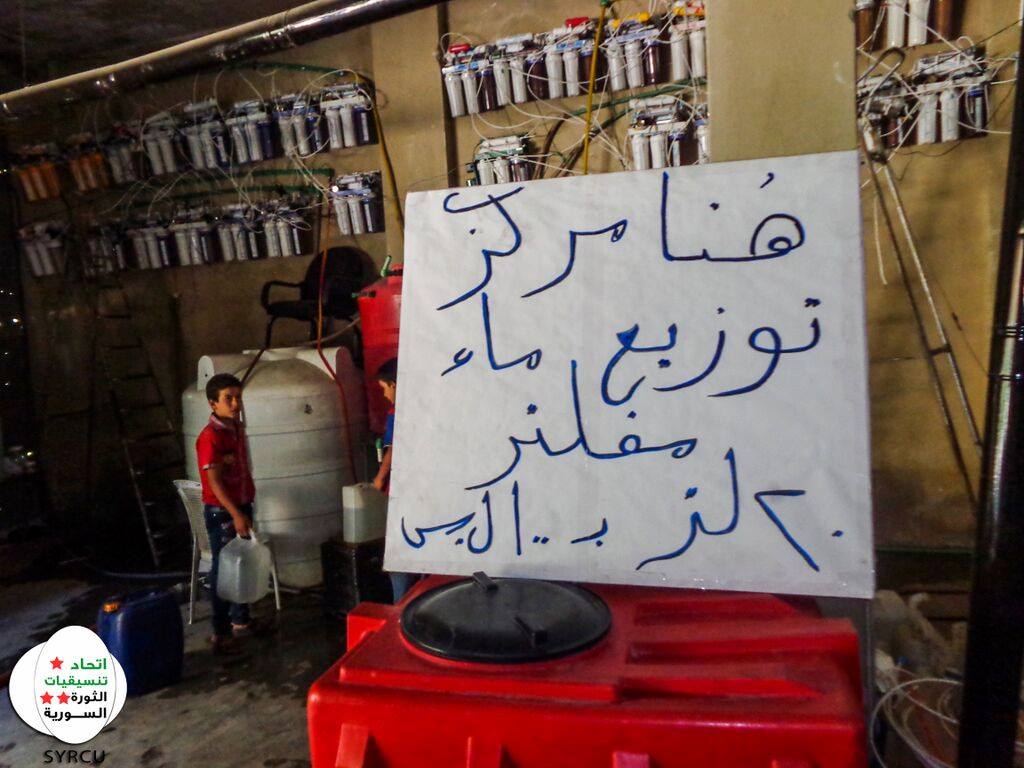 هُنا مركز
توزيع ماء
مفلتر
٢٠ لتر بـ ١٠٠ ل.س
اتحاد
تنسيقيات
الثورة
السورية
SYRCU